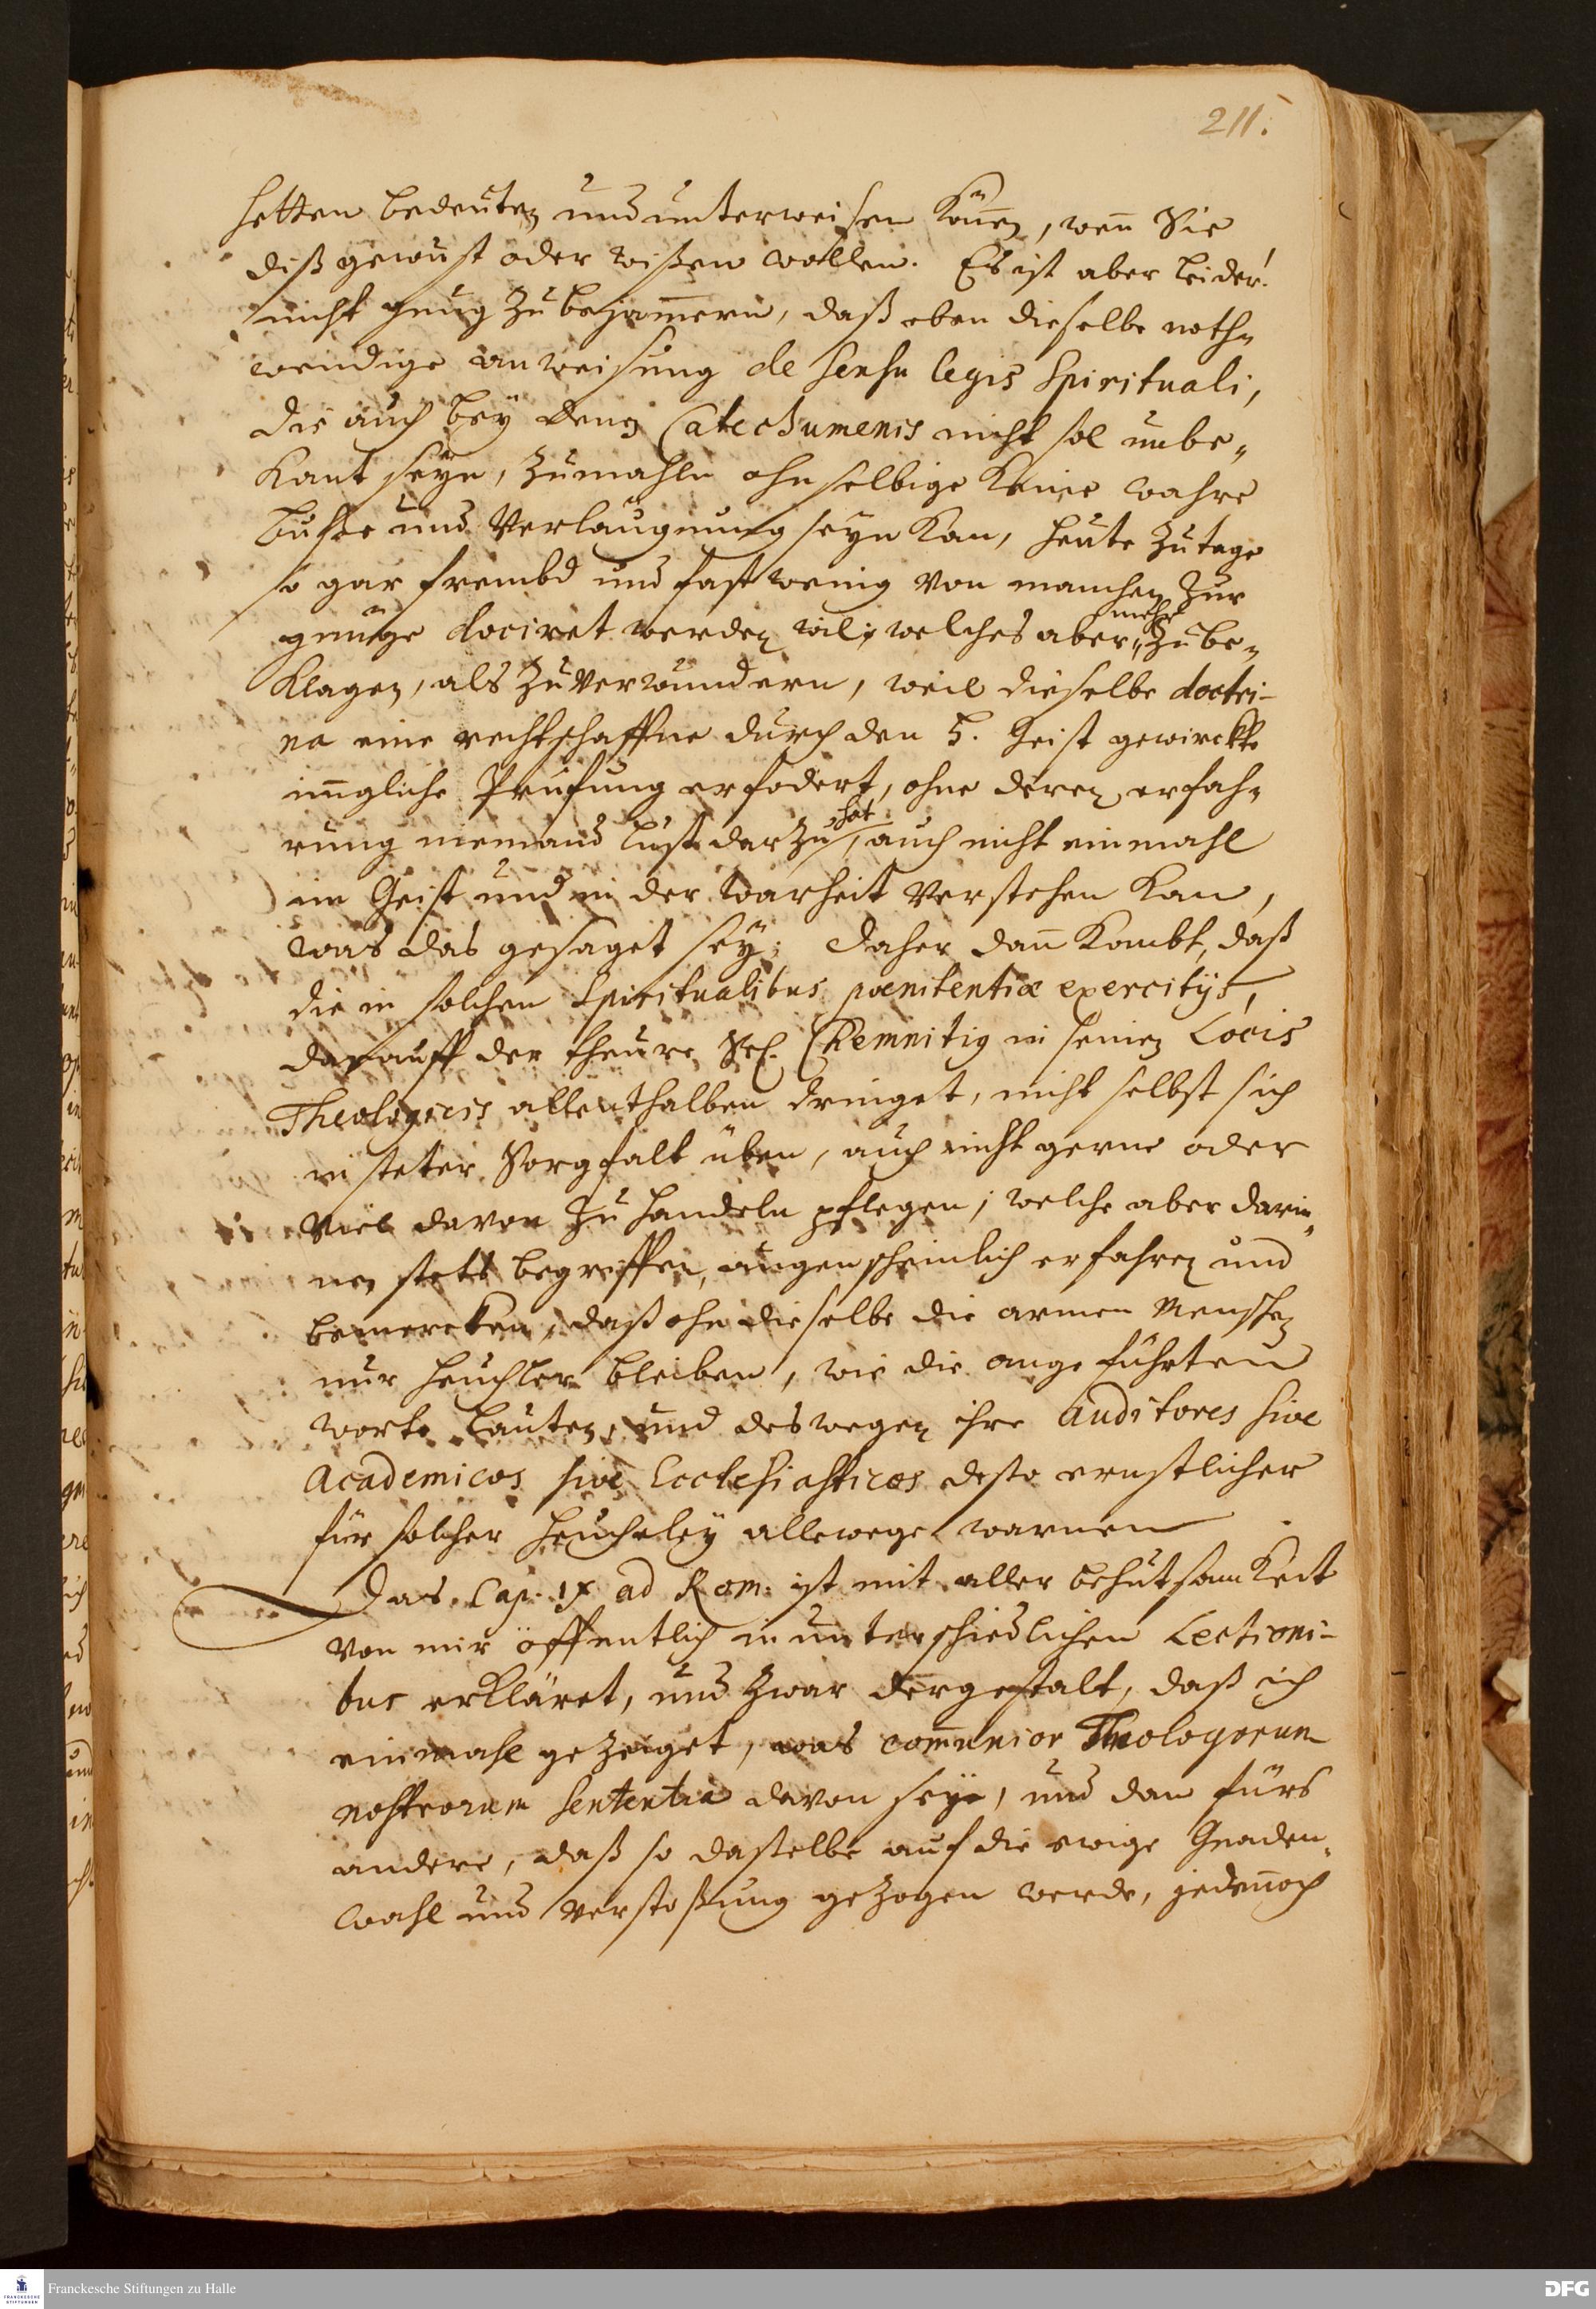 211.
hetten bedeuten und unterweisen können, wenn Sie
diß gewust oder wißen wollen. Es ist aber leider!
nicht gnug zu bejammern, daß eben dieselbe noth„
wendige anweisung de sensu legis Spirituali,
die auch bey denen Catechumenis nicht sol unbe„
kant seyn, zumahln ohn selbige keine wahre
Buße und Verlaugnung seyn kan, heute zu tage
so gar frembd und fast wenig von manchen zur
gnüge dociret werden wil; welches aber mehr zu be„
klagen, als zu verwundern, weil dieselbe doctri-
na eine rechtschaffne durch den H. Geist gewirckte
inngliche Prüfung erfodert, ohne deren erfah„
rung niemand lust darzu hat, auch nicht einmahl
im Geist und in der warheit verstehen kan,
was das gesaget sey; Daher dann kombt, daß
die in solchen Spiritualibus pœnitentiæ exercitijs,
darauff der theure Sel. Chemnitig in seinen Locis
Theologicis allenthalben dringet, nicht selbst sich
in steter Sorgfalt üben, auch nicht gerne oder
viel davon zu handeln pflegen; welche aber darin„
nen stets begriffen, augenscheinlich erfahren und
bemercken, daß ohn dieselbe die armen Menschen
nur heuchler bleiben, wie die angeführten
worte lauten, und deswegen ihre Auditores sive
Academicos sive Ecclesiasticos desto ernstlicher
für solcher heucheley allewege warnen.
Das Cap. IX ad Rom. ist mit aller behutsamkeit
von mir öffentlich in unterschiedlichen Lectioni-
bus erkläret, und zwar dergestalt, daß ich
einmahl gezeiget, was communior Theologorum
nostrorum sententia davon seye, und dan fürs
andere, daß so daßelbe auf die ewige Gnaden„
wahl und verstoßung gezogen werde, jedennoch
Franckesche Stiftungen zu Halle
FRANCKESCHE
STIFTUNGEN
DFG